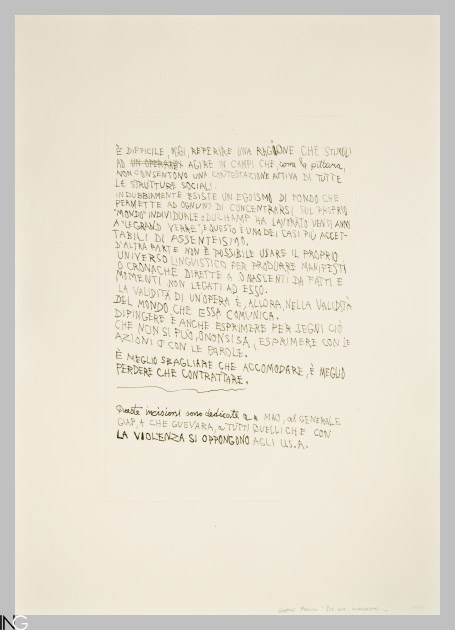 È DIFFICILE, OGGI, REPERIRE UNA RAGIONE CHE STIMOLI
AD UN'OPERARE AGIRE IN CAMPI CHE, come la pittura,
NON CONSENTONO UNA CONTESTAZIONE ATTIVA DI TUTTE
LE STRUTTURE SOCIALI.
INDUBBIAMENTE ESISTE UN EGOISMO DI FONDO CHE
PERMETTE AD OGNUNO DI CONCENTRARSI SUL PROPRIO
"MONDO" INDIVIDUALE: DUCHAMP HA LAVORATO VENTI ANNI
A "LE GRAND VERRE", E QUESTO È UNO DEI CASI PIÙ ACCET-
TABILI DI ASSENTEISMO.
D'ALTRA PARTE NON È POSSIBILE USARE IL PROPRIO
UNIVERSO LINGUISTICO PER PRODURRE MANIFESTI
O CRONACHE DIRETTE A O NASCENTI DA FATTI E
MOMENTI NON LEGATI AD ESSO.
LA VALIDITÀ DI UN'OPERA È, ALLORA, NELLA VALIDITÀ
DEL MONDO CHE ESSA COMUNICA.
DIPINGERE È ANCHE ESPRIMERE PER SEGNI CIÒ
CHE NON SI PUÒ, O NON SI SA, ESPRIMERE CON LE
AZIONI O CON LE PAROLE.
È MEGLIO SBAGLIARE CHE ACCOMODARE, È MEGLIO
PERDERE CHE CONTRATTARE.
Queste incisioni sono dedicate a MAO, al GENERALE
GIAP, A CHE GUEVARA, a TUTTI QUELLI CHE CON
LA VIOLENZA SI OPPONGONO AGLI U.S.A.
ING